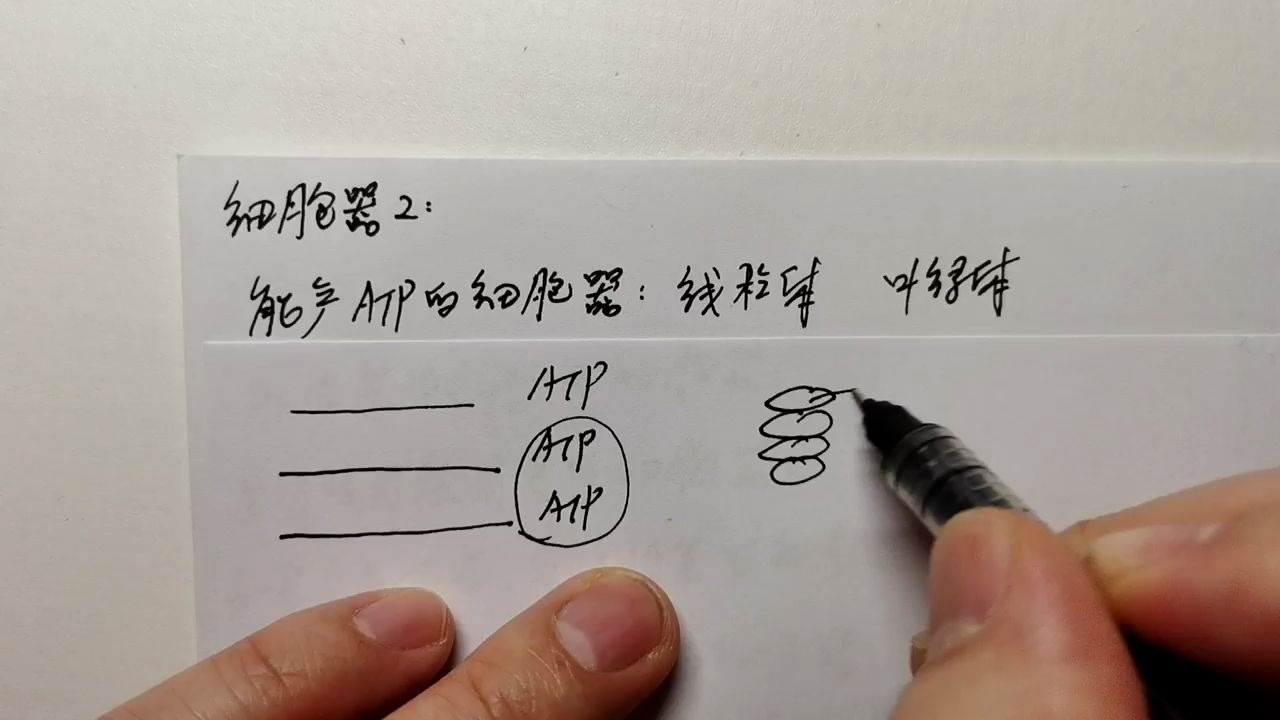 细胞器2:
能产ATP的细胞器:线粒体 叶绿体
ATP
ATP
ATP